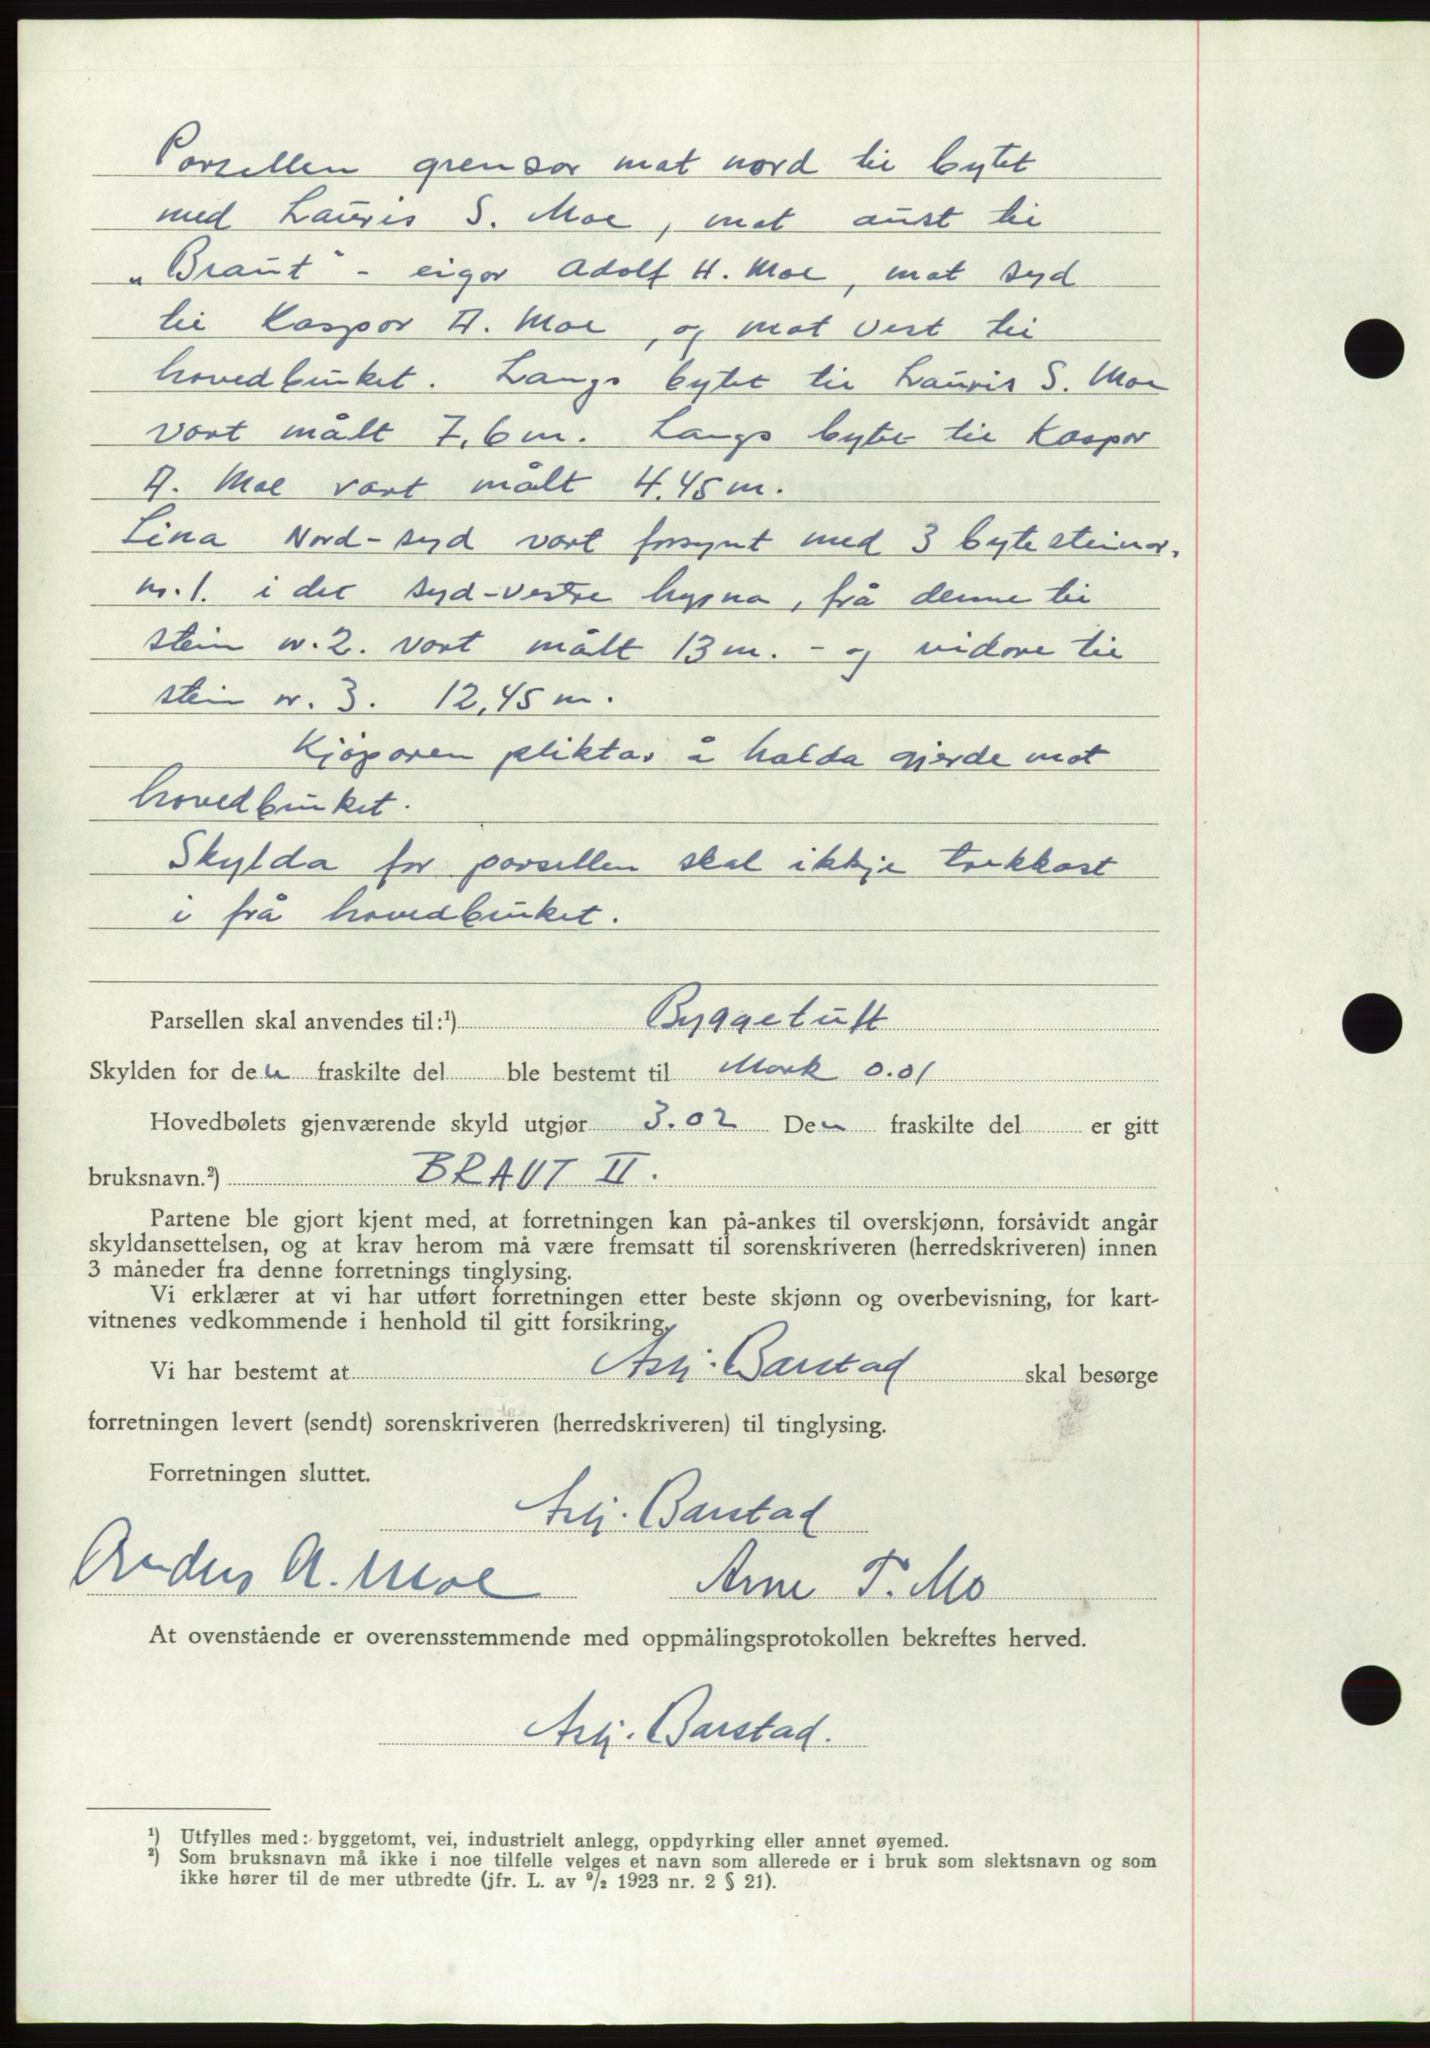 Parsellen grensar mot nord til bytet
med Lauris S. Moe, mot aust til
„Braut" - eigar Adolf H. Moe, mot syd
til Kaspar A. Moe, og mot vest til
hovedbruket. Langs bytet til Lauris S. Moe
vart målt 7,6 m. Langs bytet til Kaspar
A. Moe vart målt 4.45 m.
Lina Nord-syd vart forsynt med 3 bytesteinar,
nr. 1. i det syd-vestre hyrna, frå denne til
stein nr. 2. vart målt 13 m. - og vidare til
stein nr. 3. 12,45 m.
Kjøparen pliktar å halda gjerde mot
hovedbruket.
Skylda for parsellen skal ikkje trekkast
i frå hovedbruket.
Parsellen skal anvendes til:¹) Byggetuft
Skylden for den fraskilte del ble bestemt til Mark 0.01
Hovedbølets gjenværende skyld utgjør 3.02 Den fraskilte del er gitt
bruksnavn.²) BRAUT II.
Partene ble gjort kjent med, at forretningen kan på-ankes til overskjønn, forsåvidt angår
skyldansettelsen, og at krav herom må være fremsatt til sorenskriveren (herredskriveren) innen
3 måneder fra denne forretnings tinglysing.
Vi erklærer at vi har utført forretningen etter beste skjønn og overbevisning, for kart-
vitnenes vedkommende i henhold til gitt forsikring.
Vi har bestemt at Asbj. Barstad skal besørge
forretningen levert (sendt) sorenskriveren (herredskriveren) til tinglysing.
Forretningen sluttet.
Asbj. Barstad
Anders A. Moe Arne T. Mo
At ovenstående er overensstemmende med oppmålingsprotokollen bekreftes herved.
Asbj. Barstad.
¹) Utfylles med: byggetomt, vei, industrielt anlegg, oppdyrking eller annet øyemed.
²) Som bruksnavn må ikke i noe tilfelle velges et navn som allerede er i bruk som slektsnavn og som
ikke hører til de mer utbredte (jfr. L. av ⁹/₂ 1923 nr. 2 § 21).